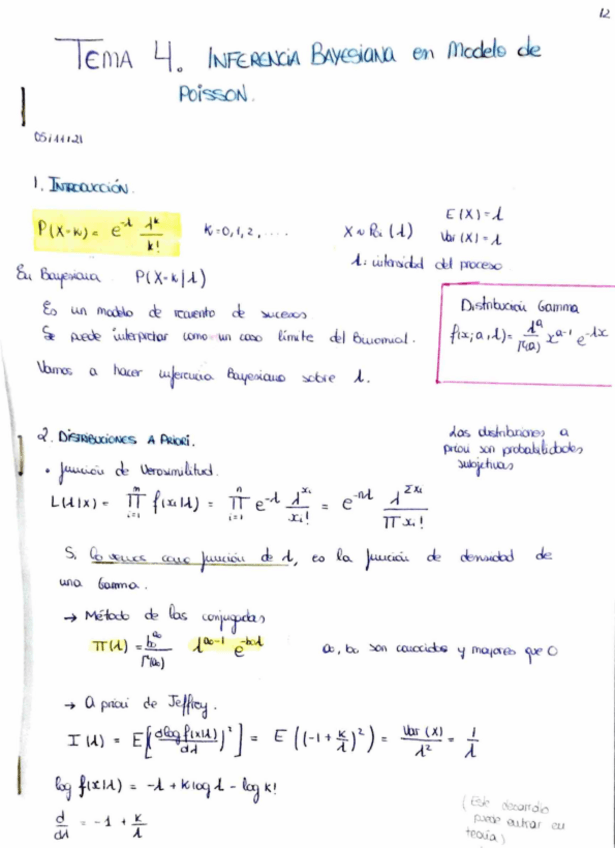 12
TEMA 4. INFERENCIA BAYESIANA en Modelo de
POISSON.
05/11/21
1. INTRODUCCIÓN.
P(X=k) = e^{-λ} λ^k / k!    k=0,1,2,....    X ~ Po(λ)    E(X)=λ
Var(X)=λ
λ: intensidad del proceso
En Bayesiana P(X=k|λ)
Es un modelo de recuento de sucesos
Se puede interpretar como un caso límite del Binomial.
Vamos a hacer inferencia Bayesiana sobre λ.
Distribución Gamma
f(x;a,λ) = λ^a / Γ(a) x^{a-1} e^{-λx}
2. DISTRIBUCIONES A PRIORI.
Las distribuciones a
priori son probabilidades
subjetivas
• función de Verosimilitud.
L(λ|x) = ∏_{i=1}^{n} f(xi|λ) = ∏_{i=1}^{n} e^{-λ} λ^{xi} / xi! = e^{-nλ} λ^{Σxi} / ∏xi!
Si lo vemos como función de λ, es la función de densidad de
una Gamma.
→ Método de las conjugadas
π(λ) = b0^{a0} / Γ(a0) λ^{a0-1} e^{-b0λ}    a0, b0 son conocidos y mayores que 0
→ A priori de Jeffrey.
I(λ) = E[(dlog f(x|λ) / dλ)^2] = E((-1 + k/λ)^2) = Var(X) / λ^2 = 1/λ
log f(x|λ) = -λ + k log λ - log k!
d/dλ = -1 + k/λ
(Este desarrollo
puede entrar en
teoría)